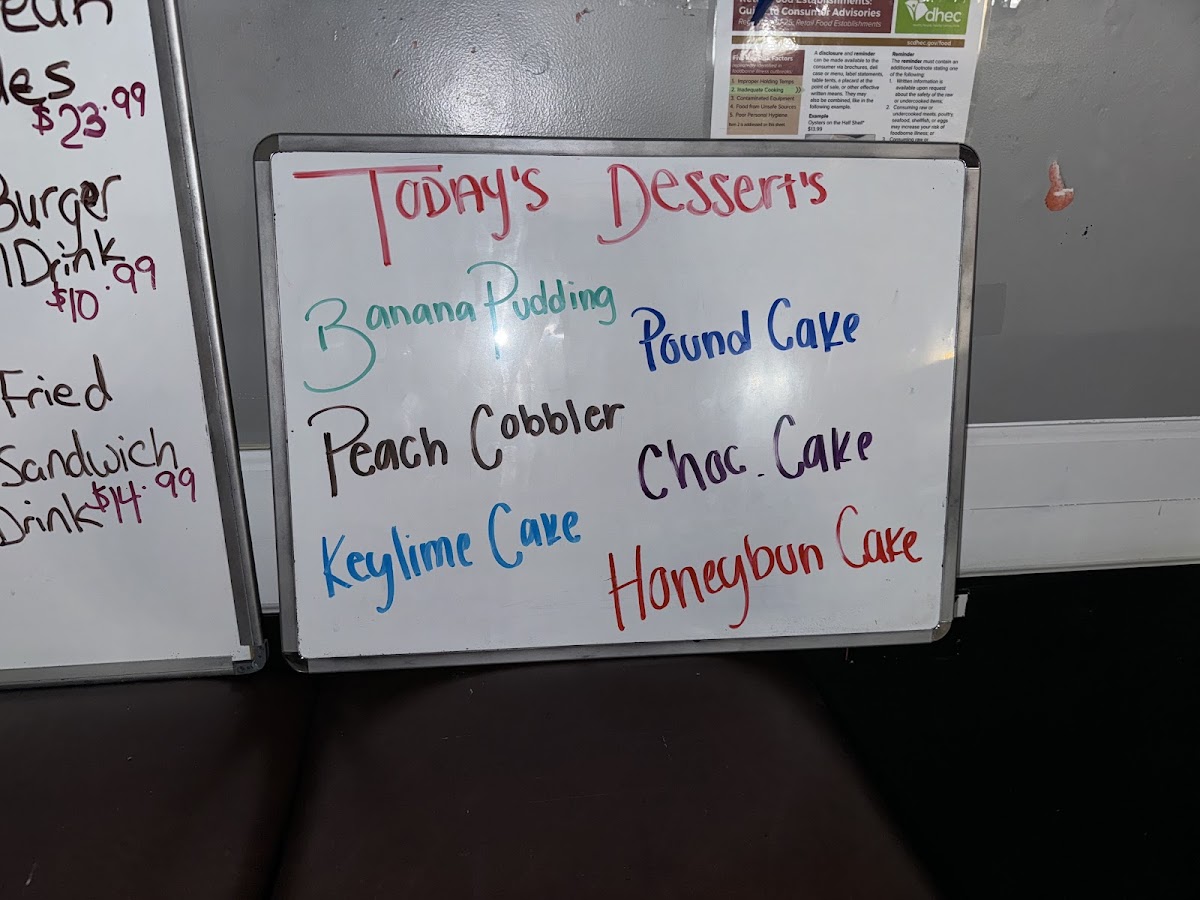 $23.99
Burger
Drink
$10.99
Fried
Sandwich
Drink $14.99
Today's Dessert's
Banana Pudding
Pound Cake
Peach Cobbler
Choc. Cake
Keylime Cake
Honeybun Cake
Guide to Consumer Advisories
Retail Food Establishments
dhec
scdhec.gov/food
1. Improper Holding Temps
2. Inadequate Cooking
3. Contaminated Equipment
4. Food from Unsafe Sources
5. Poor Personal Hygiene
A disclosure and reminder
can be made available to the
consumer via brochures, deli
case or menu, label statements,
table tents, a placard at the
point of sale, or other effective
written means. They may
also be combined, like in the
following example.
Example
Oysters on the Half Shell*
$13.99
Reminder
The reminder must contain an
additional footnote stating one
of the following:
1. Written information is
available upon request
about the safety of the raw
or undercooked items;
2. Consuming raw or
undercooked meats, poultry,
seafood, shellfish, or eggs
may increase your risk of
foodborne illness; or